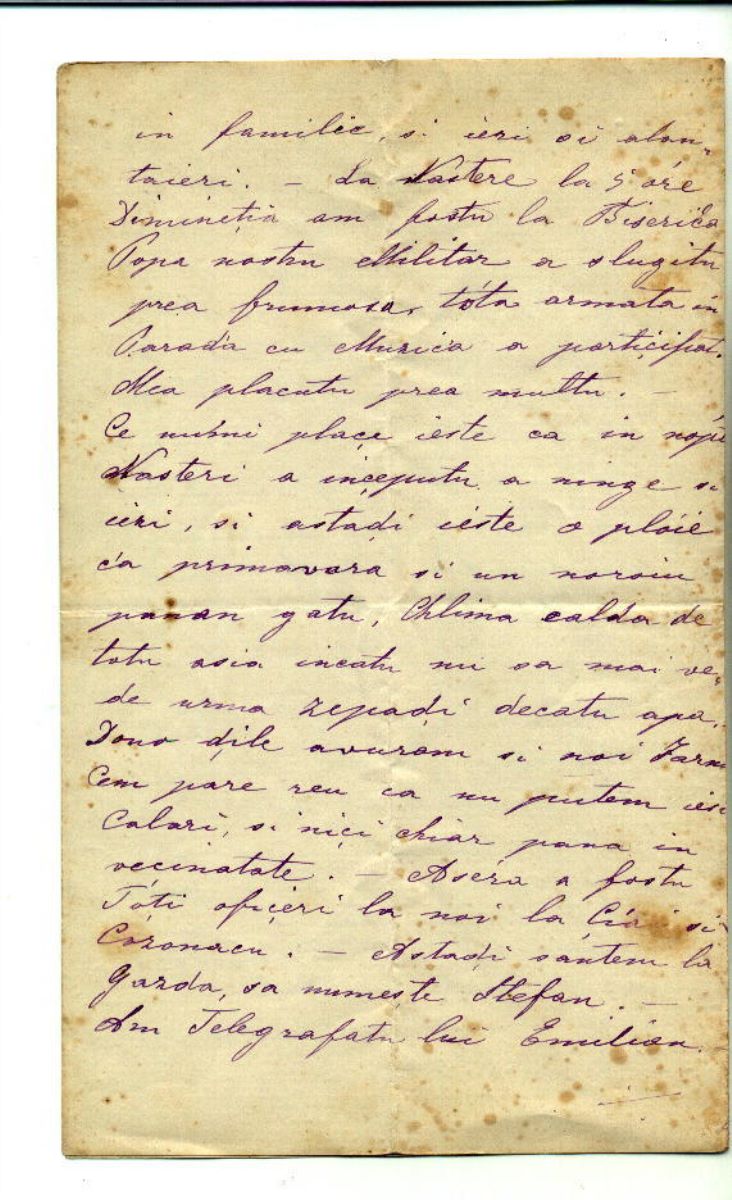 in familie, si ieri si alon-
taieri. - La Nastere la 5 óre
Dimineția am fostu la Biserica
Popa nostru Militar a slugitu
prea frumosa, tóta armata in
Parada cu Muzica a participat.
Mea placutu prea multu. -
Ce numi plaçe ieste ca in nopti
Nasteri a inçeputu a ninge si
ieri, si astadi ieste o ploie
ca primavara si un noroiu
panan gatu, Chlima calda de
totu asia incatu nu sa mai ve-
de urma zepadi decatu apa.
Douo dile avuram si noi Iarna
Cem pare reu ca nu putem iesi
Calari, si niçi chiar pana in
vecinatate. - Aséra a fostu
Toți ofiçeri la noi la Çiai si
Cozonacu. - Astadi santem la
Gazda, sa numeste Stefan. -
Am Telegrafatu lui Emilian. -